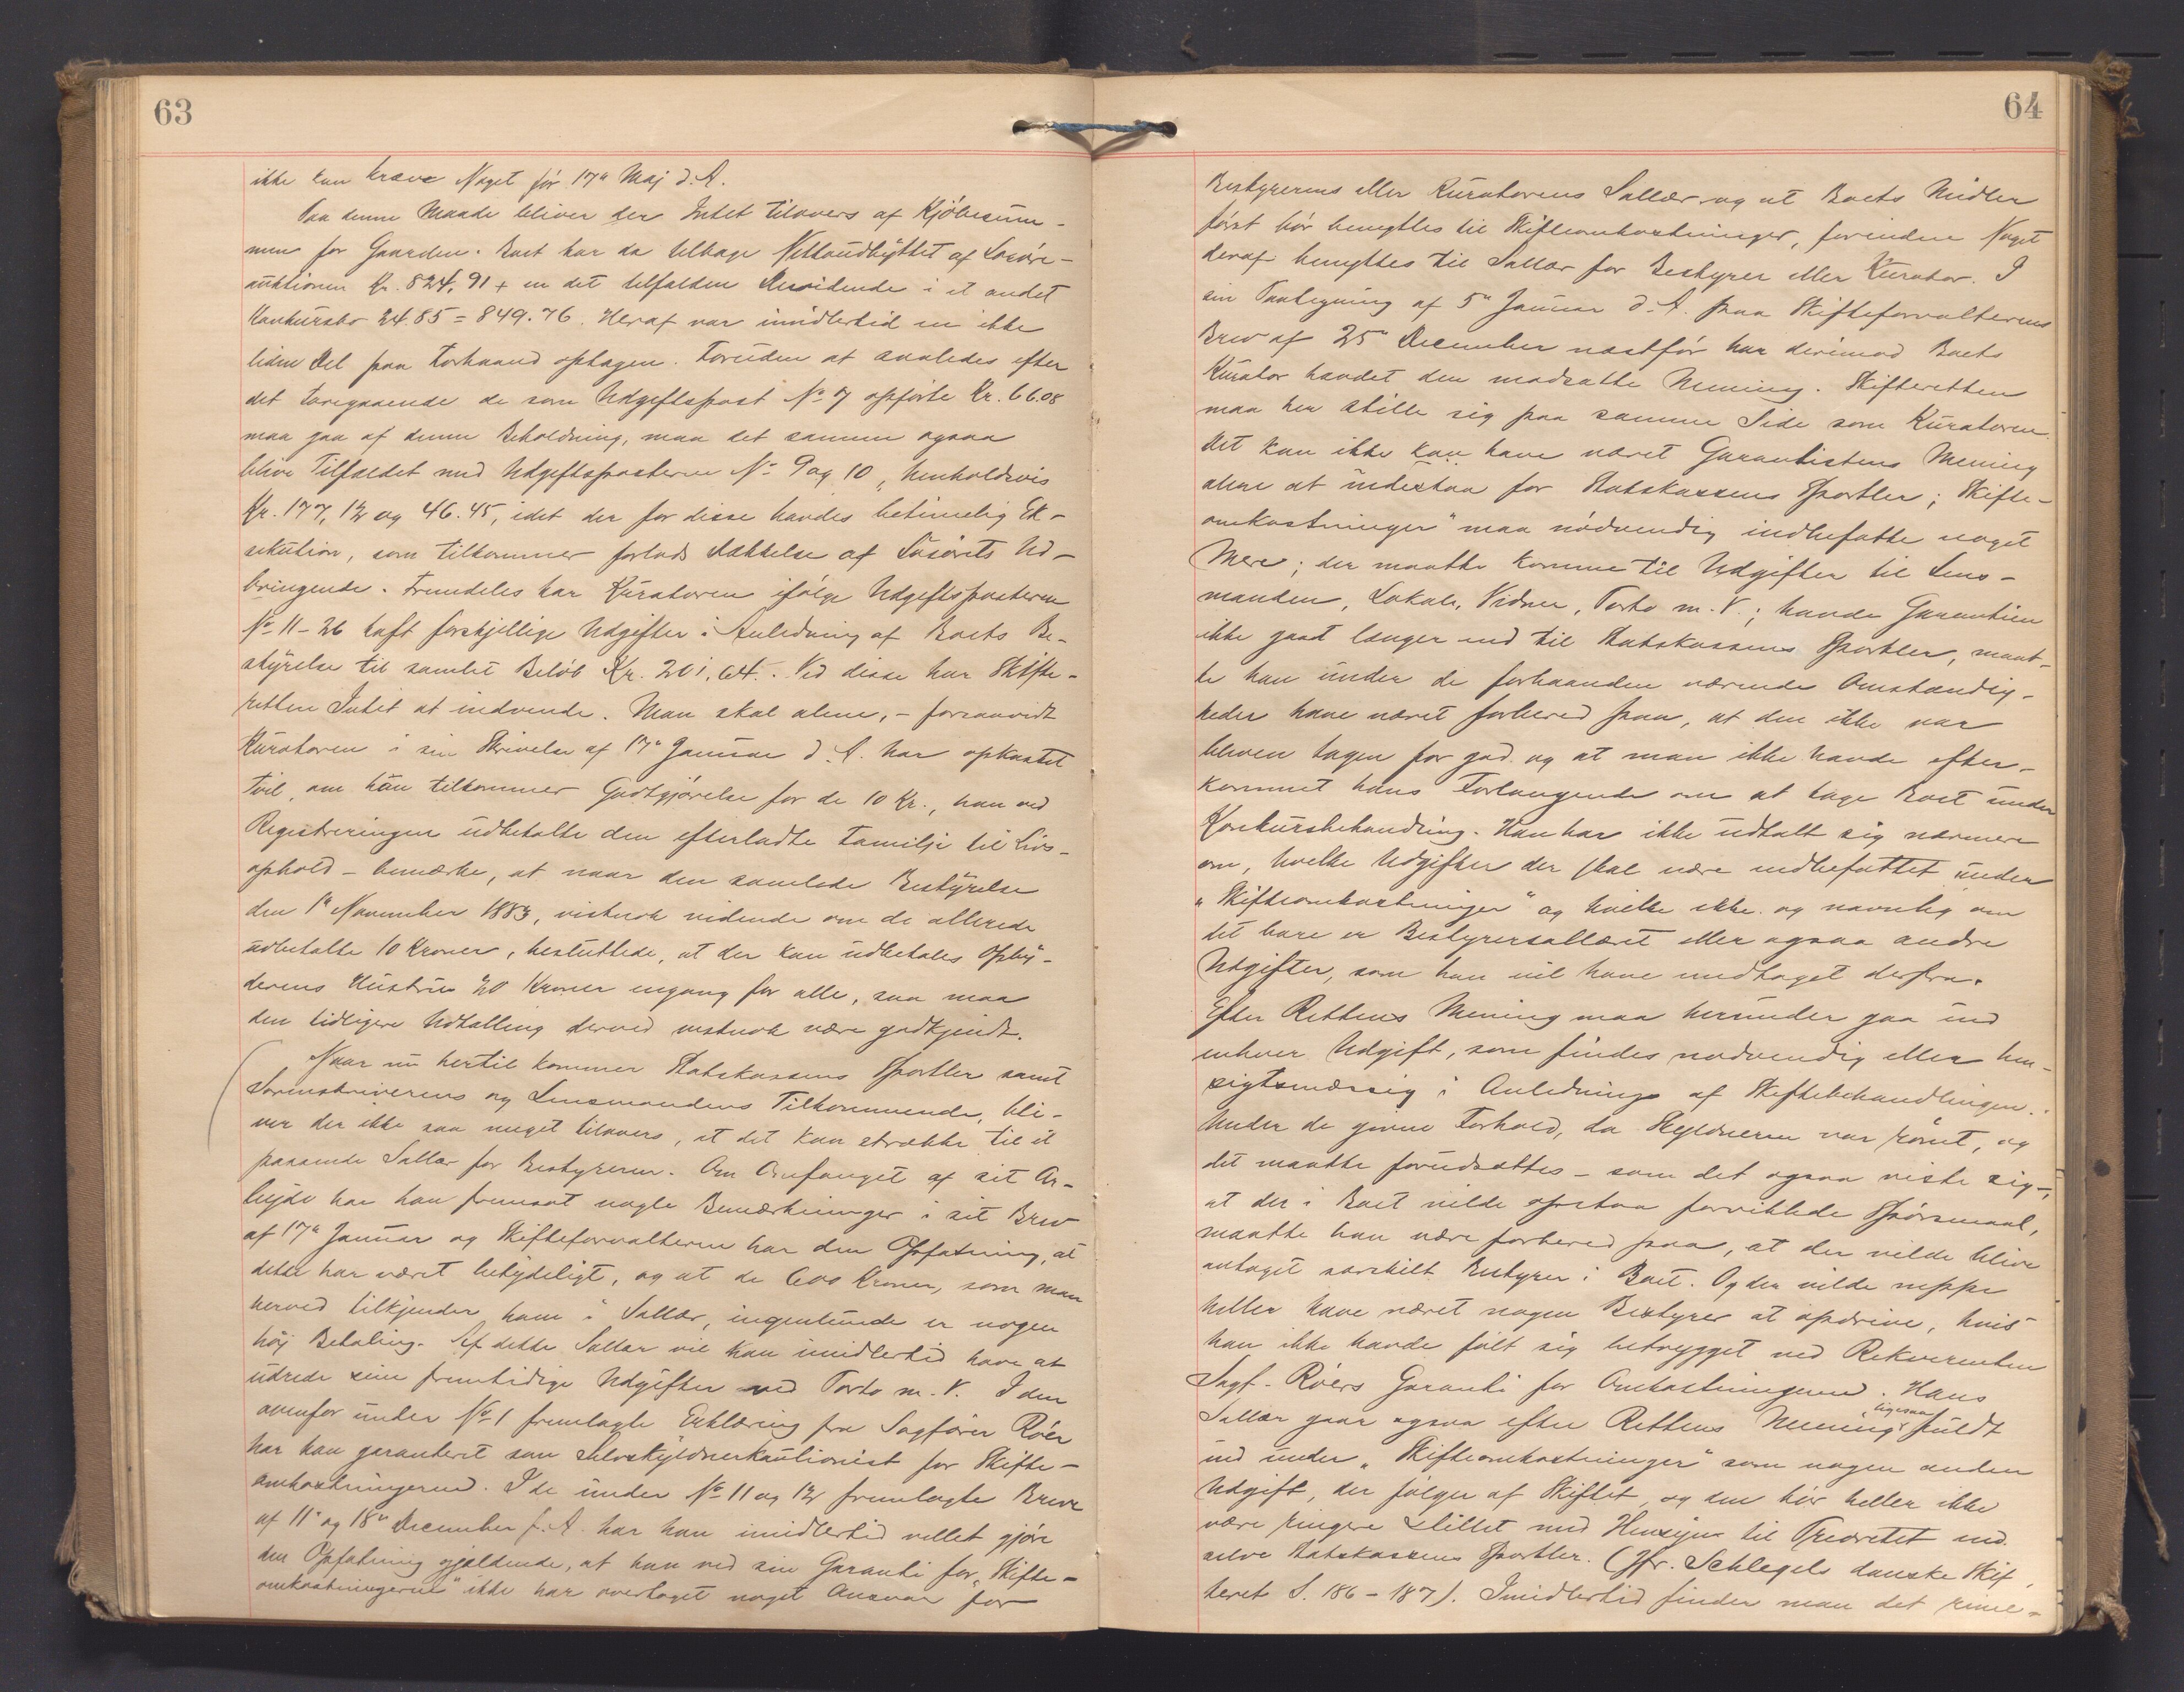 63
ikke kan kræve Noget før 17de Maj d. A.
Paa denne Maade bliver der Intet tilovers af Kjöbesum-
men for Gaarden. Boet har da tilbage Nettoudbyttet af Losøre-
auktionen Kr. 824,91 + en det tilfalden Dividende i et andet
Konkursbo 24.85 = 849.76. Heraf var imidlertid en ikke
liden Del paa Forhaand optagen. Foruden at saaledes efter
det Foregaaende de som Udgiftspost No 7 opførte Kr. 66.08
maa gaa af denne Beholdning, maa det samme ogsaa
blive Tilfældet med Udgiftsposterne No 9 og 10, henholdsvis
Kr. 177,12 og 46.45, idet der for disse havdes betimelig Ek-
sekution, som tilkommer forlods Dækkelse af Løsørets Ud-
bringende. Fremdeles har Kuratoren ifølge Udgiftsposterne
No 11-26 haft forskjellige Udgifter i Anledning af Boets Be-
styrelse til samlet Beløb Kr. 201,64. Ved disse har Skifte-
retten Intet at indvende. Man skal alene, - forsaavidt
Kuratoren i sin Skrivelse af 17de Januar d. A. har opkastet
Tvil, om han tilkommer Godtgjörelse for de 10 Kr., han ved
Registreringen udbetalte den efterladte Familje til Livs-
ophold - bemærke, at naar den samlede Bestyrelse
den 1ste November 1883, vistnok vidende om de allerede
udbetalte 10 Kroner, besluttede, at der kan udbetales Opby-
derens Hustru 20 Kroner engang for alle, saa maa
den tidligere Udtælling derved vistnok være godkjendt.
Naar nu hertil kommer Statskassens Sportler samt
Sorenskriverens og Lensmandens Tilkommende, bli-
ver der ikke saa meget tilovers, at det kan strække til et
passende Sallær for Bestyreren. Om Omfanget af sit Ar-
bejde har han fremsat nogle Bemærkninger i sit Brev
af 17de Januar og Skifteforvalteren har den Opfatning, at
dette har været betydeligt, og at de 600 Kroner, som man
herved tilkjender ham i Sallær, ingenlunde er nogen
høj Betaling. Af dette Sallær vil han imidlertid have at
udrede sine fremtidige Udgifter ved Porto m. V. I den
ovenfor under No 1 fremlagte Erklæring fra Sagfører Röer
har han garanteret som Selvskyldnerkautionist for Skifte-
omkostningerne. I de under No 11 og 12 fremlagte Breve
af 11te og 18de December f. A. har han imidlertid villet gjöre
den Opfatning gjældende, at han ved sin Garanti for "Skifte-
omkostningerne" ikke har overtaget noget Ansvar for
64
Bestyrerens eller Kuratorens Sallær, og at Boets Midler
først bör benyttes til Skifteomkostninger, forinden Noget
deraf benyttes til Sallær for Bestyrer eller Kurator. I
sin Paategning af 5te Januar d. A. paa Skifteforvalterens
Brev af 25de December næstfør har derimod Boets
Kurator hævdet den modsatte Mening. Skifteretten
maa her stille sig paa samme Side som Kuratoren.
Det kan ikke kan have været Garantistens Mening
alene at indestaa for Statskassens Sportler; Skifte-
omkostninger" maa nødvendig indbefatte noget
Mere; der maatte komme til Udgifter til Lens-
manden, Lokale, Vidner, Porto m. V.; havde Garantien
ikke gaat længer end til Statskassens Sportler, maat-
te han under de forhaanden værende Omstændig-
heder have været forbered paa, at den ikke var
bleven tagen for god, og at man ikke havde efter-
kommet hans Forlangende om at tage Boet under
Konkursbehandling. Han har ikke udtalt sig nærmere
om, hvilke Udgifter der skal være indbefattet under
"Skifteomkostninger" og hvilke ikke, og navnlig om
det bare er Bestyrersallæret eller ogsaa andre
Udgifter, som han vil have undtaget derfra.
Efter Rettens Mening maa herunder gaa ind
enhver Udgift, som findes nødvendig eller hen-
sigtsmæssig i Anledning af Skiftebehandlingen.
Under de givne Forhold, da Skyldneren var rømt, og
det maatte forudsættes - som det ogsaa viste sig -,
at der i Boet vilde opstaa forviklede Spörsmaal,
maatte han være forbered paa, at der vilde blive
antaget særskilt Bestyrer i Boet. Og der vilde neppe
heller have været nogen Bestyrer at opdrive, hvis
han ikke havde følt sig betrygget ved Rekvirenten
Sagf. Röers Garanti for Omkostningerne. Hans
Sallær gaar ogsaa efter Rettens Mening ligesaa fuldt
ind under "Skifteomkostninger" som nogen anden
Udgift, der følger af Skiftet, og den bör heller ikke
være ringere stillet med Hensyn til Prioritet end
selve Statskassens Sportler. (Jfr. Schlegels danske Skif-
teret S. 186-187). Imidlertid finder man det rime-